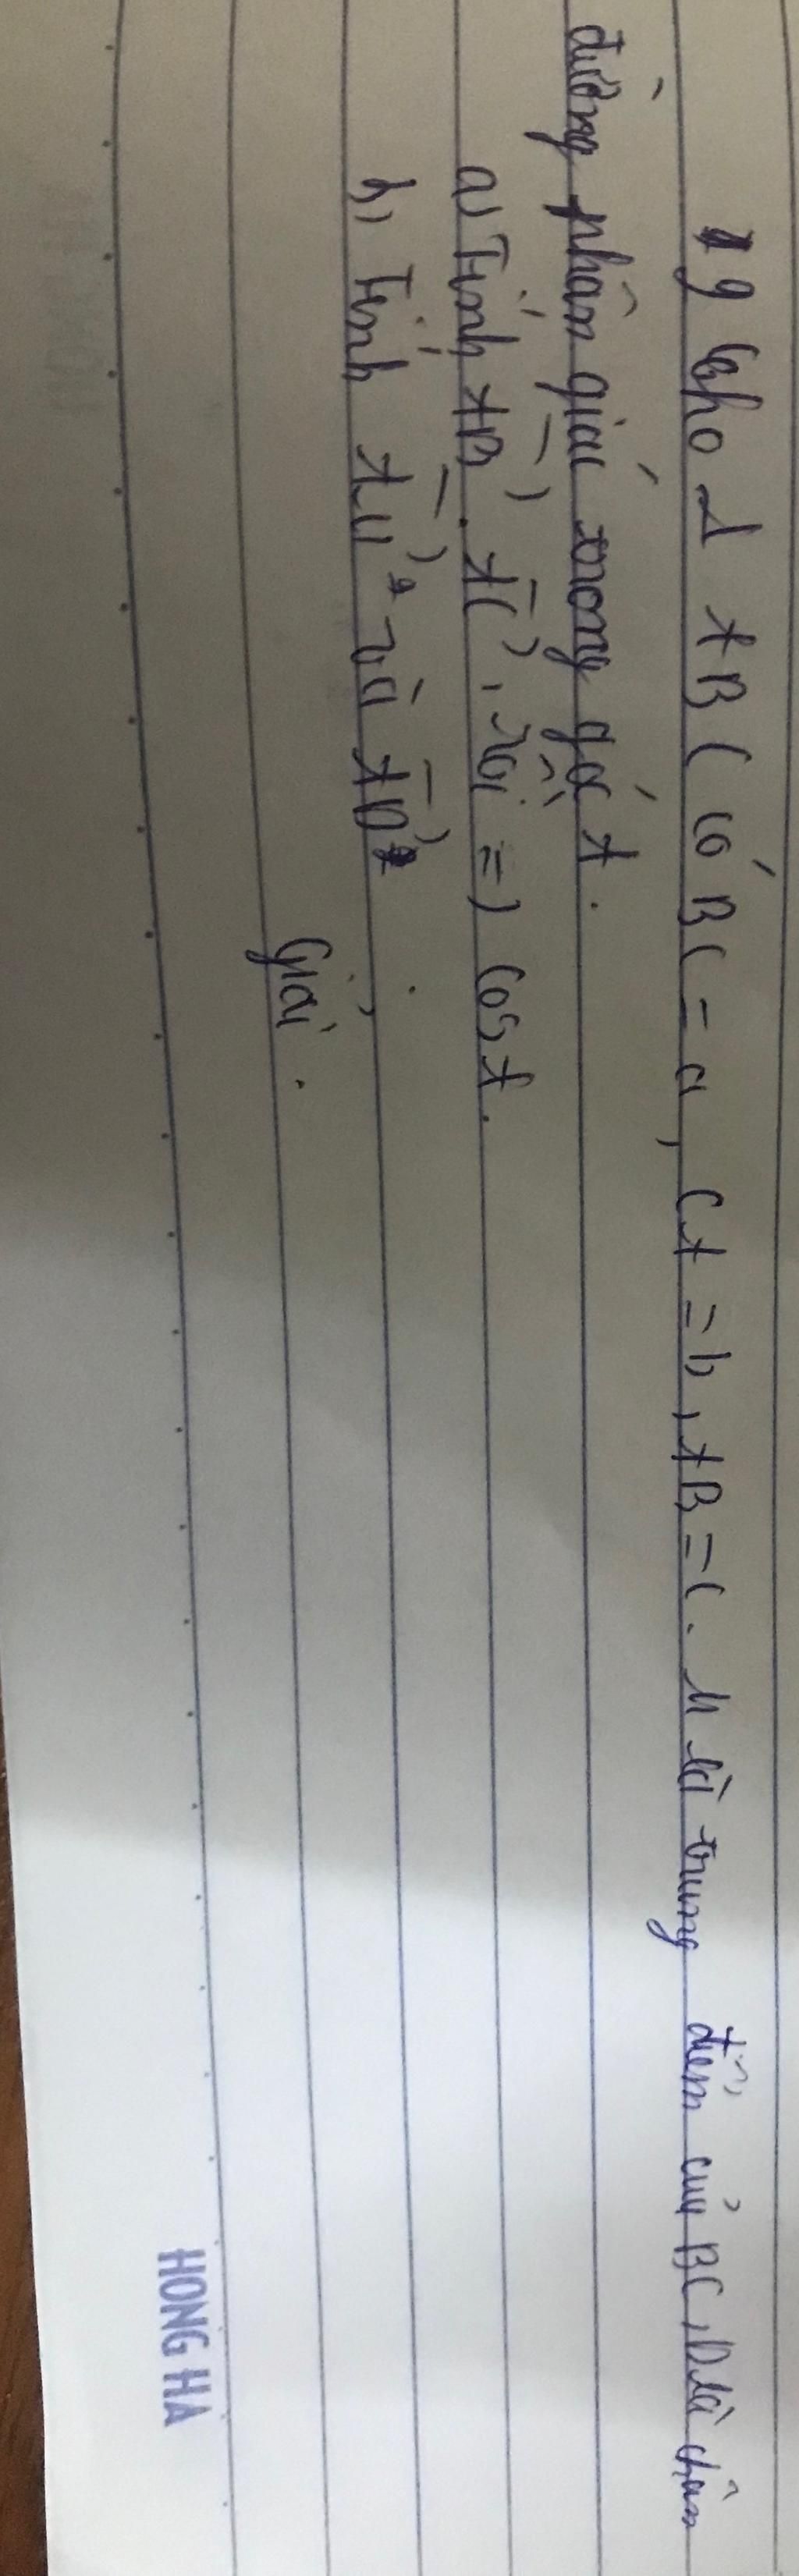 19 Cho Δ ABC có BC = a, CA = b, AB = c. M là trung điểm của BC, D là chân
đường phân giác trong góc A.
a) Tính AB⃗ . AC⃗, rồi => cos A.
b) Tính AM⃗² và AD⃗²
Giải.
HONG HA